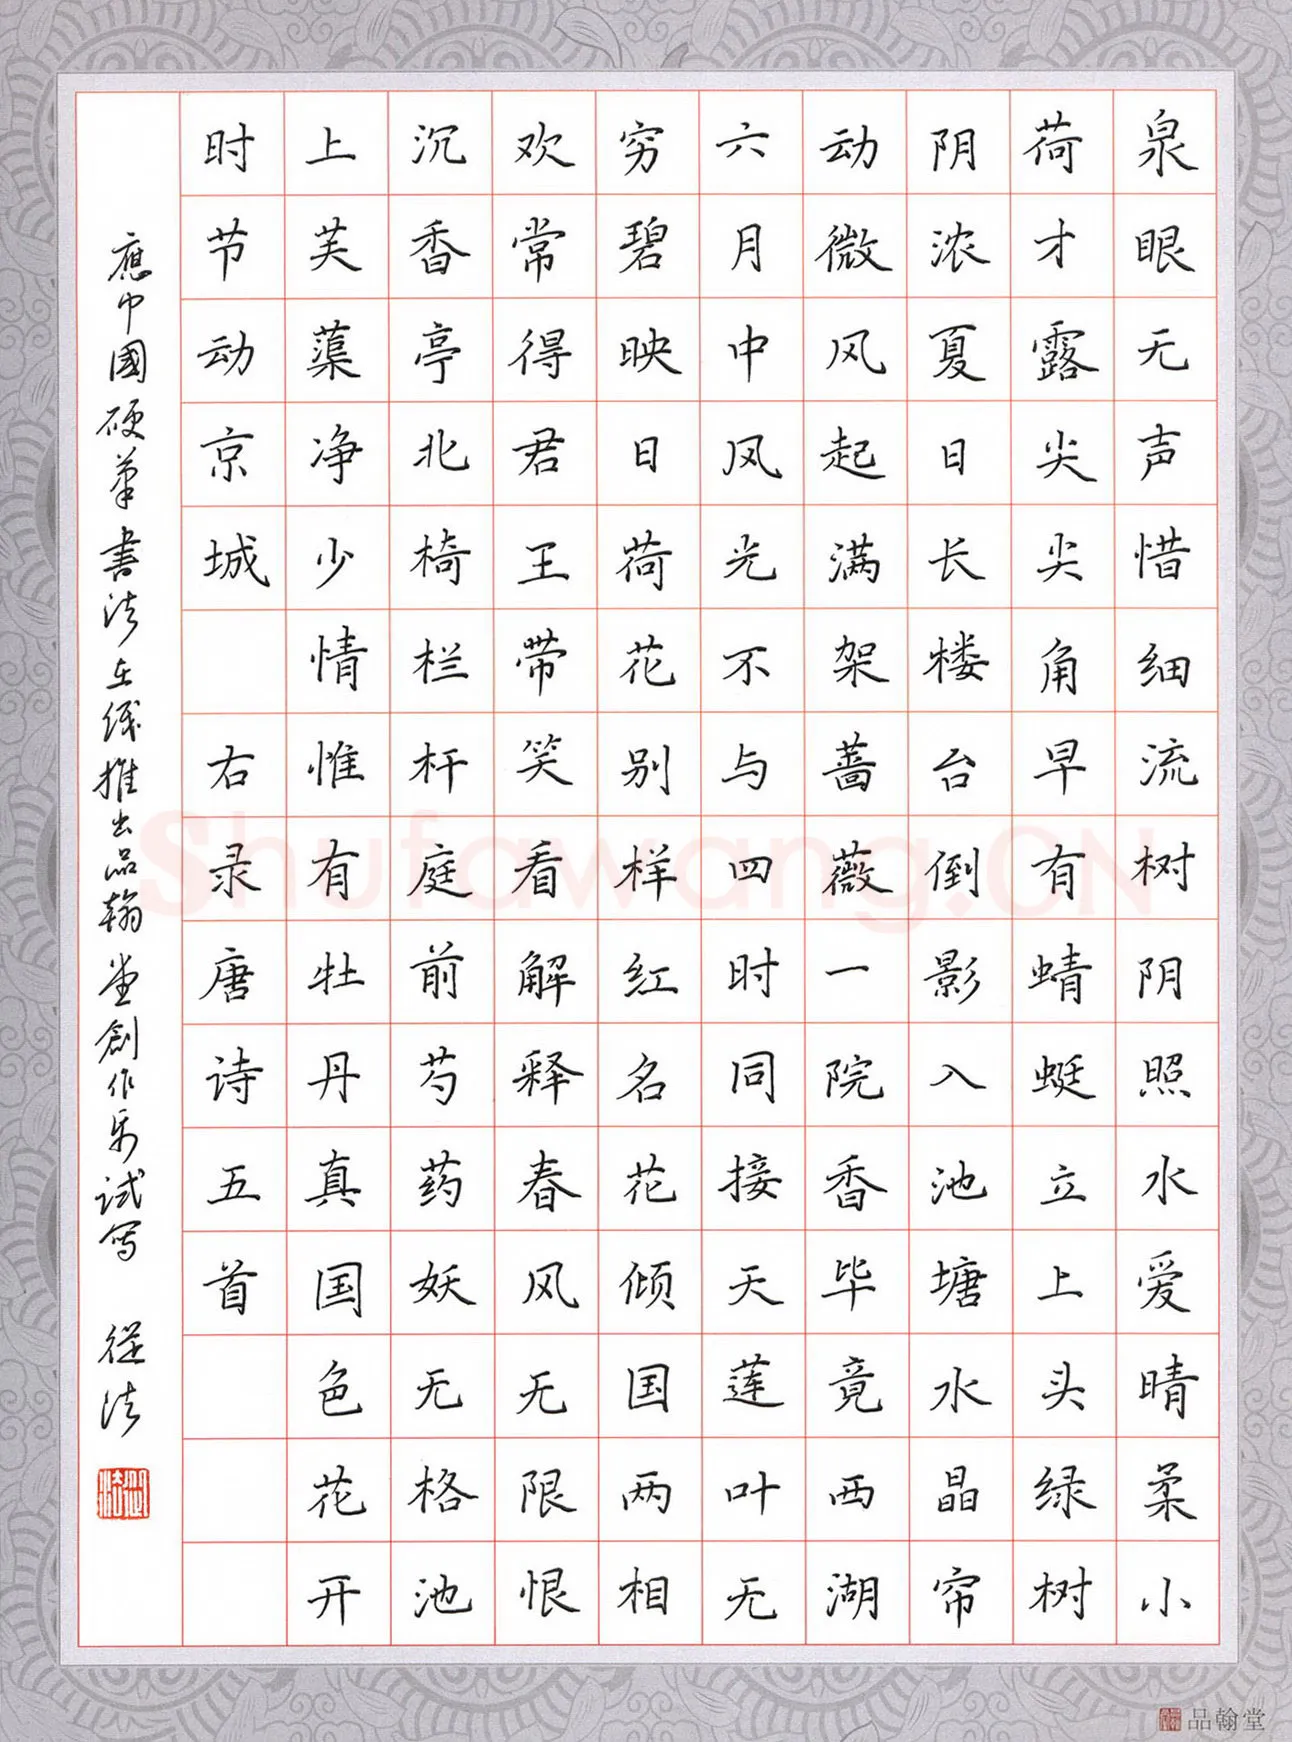 泉眼无声惜细流树阴照水爱晴柔小
荷才露尖尖角早有蜻蜓立上头绿树
阴浓夏日长楼台倒影入池塘水晶帘
动微风起满架蔷薇一院香毕竟西湖
六月中风光不与四时同接天莲叶无
穷碧映日荷花别样红名花倾国两相
欢常得君王带笑看解释春风无限恨
沉香亭北椅栏杆庭前芍药妖无格池
上芙蕖净少情惟有牡丹真国色花开
时节动京城 右录唐诗五首
應中國硬筆書法在线推出品翰堂創作试写 從法
Shufawang.CN
品翰堂